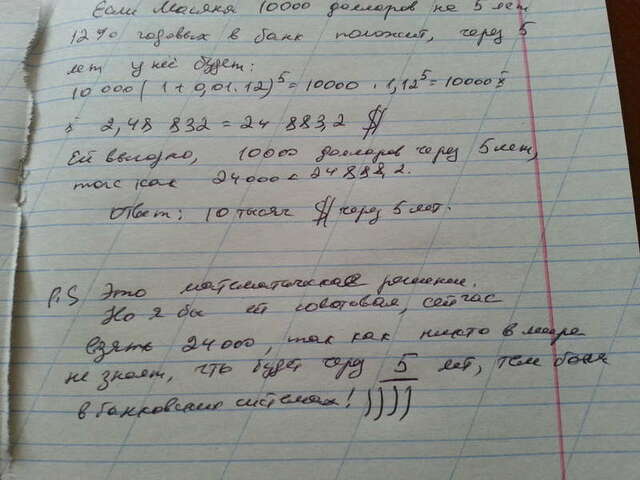 Если Масяня 10000 долларов на 5 лет
12% годовых в банк положит, через 5
лет у неё будет:
10 000 (1+0,01·12)⁵ = 10000 · 1,12⁵ = 10000 x
x 2,48 832 = 24 883,2 $
Ей выгодно, 10000 долларов через 5 лет,
так как 24000 < 24 888,2.
Ответ: 10 тысяч $ через 5 лет.
P.S Это математическое решение.
Но я бы ей советовал, сейчас
взять 24000, так как никто в мире
не знает, что будет через 5 лет, тем более
в банковских системах! ))))